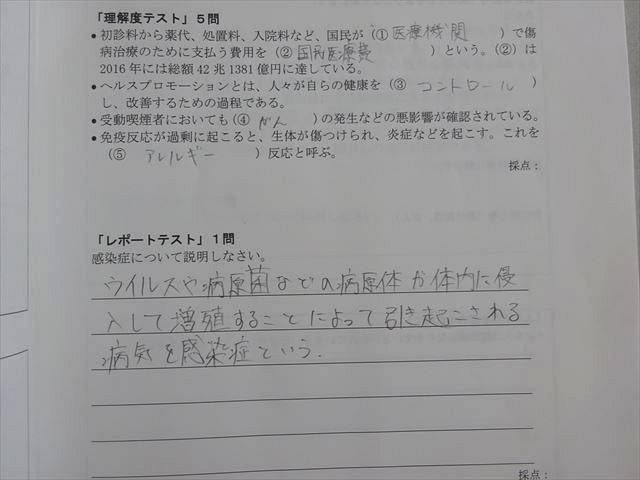 「理解度テスト」５問
• 初診料から薬代、処置料、入院料など、国民が（① 医療機関 ）で傷
病治療のために支払う費用を（② 国民医療費 ）という。（②）は
2016 年には総額 42 兆 1381 億円に達している。
• ヘルスプロモーションとは、人々が自らの健康を（③ コントロール ）
し、改善するための過程である。
• 受動喫煙者においても（④ がん ）の発生などの悪影響が確認されている。
• 免疫反応が過剰に起こると、生体が傷つけられ、炎症などを起こす。これを
（⑤ アレルギー ）反応と呼ぶ。
採点：
「レポートテスト」１問
感染症について説明しなさい。
ウイルスや病原菌などの病原体が体内に侵
入して増殖することによって引き起こされる
病気を感染症という.
採点：